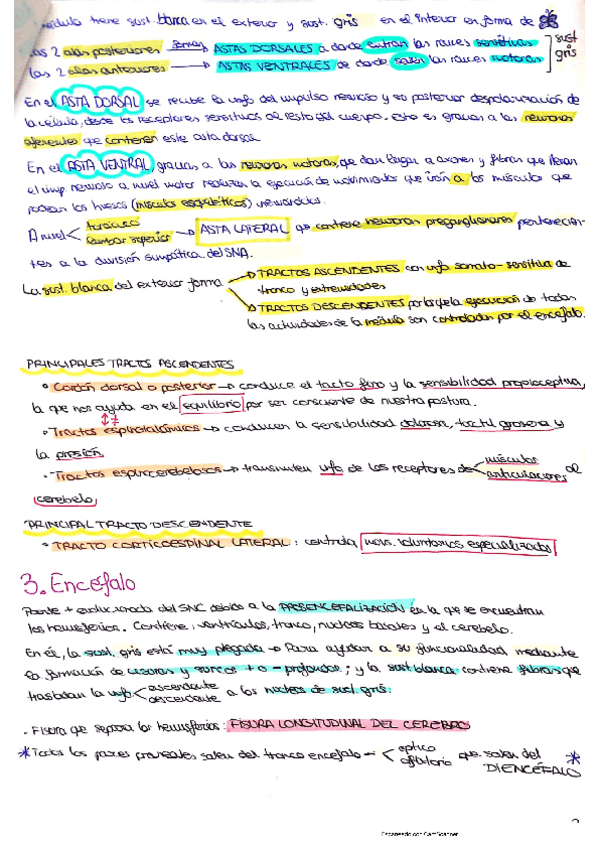 médula tiene sust. blanca en el exterior y sust. gris en el interior en forma de
Las 2 alas posteriores forman → ASTAS DORSALES a donde entran las raíces sensitivas ] sust
Las 2 alas anteriores → ASTAS VENTRALES de donde salen las raíces motoras ] gris
En el ASTA DORSAL se recibe la info del impulso nervioso y su posterior despolarización de
la célula, desde los receptores sensitivos al resto del cuerpo. Esto es gracias a las neuronas
aferentes que contienen este asta dorsal.
En el ASTA VENTRAL, gracias a las neuronas motoras, que dan lugar a axones y fibras que llevan
el imp nervioso a nivel motor realizan la ejecución de movimientos que irán a los músculos que
rodean los huesos (músculos esqueléticos) inervándolos.
A nivel < torácico
lumbar superior → ASTA LATERAL que contiene neuronas preganglionares pertenecien-
tes a la división simpática del SNA.
La sust. blanca del exterior forma → TRACTOS ASCENDENTES con info somato-sensitiva de
tronco y extremidades
→ TRACTOS DESCENDENTES por la que la ejecución de todas
las actividades de la médula son controladas por el encéfalo.
PRINCIPALES TRACTOS ASCENDENTES
• Cordón dorsal o posterior → conduce el tacto fino y la sensibilidad propioceptiva,
la que nos ayuda en el equilibrio por ser consciente de nuestra postura.
• Tractos espinotalámicos → conducen la sensibilidad dolorosa, tactil grosera y
la presión.
• Tractos espinocerebelosos → transmiten info de los receptores de < músculos
articulaciones al
cerebelo.
PRINCIPAL TRACTO DESCENDENTE
• TRACTO CORTICOESPINAL LATERAL: controla movs. voluntarios especializados
3. Encéfalo
Parte + evolucionada del SNC debido a la PROSENCEFALIZACIÓN en la que se encuentran
los hemisferios. Contiene: ventrículos, tronco, núcleos basales y el cerebelo.
En él, la sust. gris está muy plegada → Para ayudar a su funcionalidad mediante
la formación de cisuras y surcos + o - profundos; y la sust blanca contiene fibras que
trasladan la info. < ascendente
descendente a los núcleos de sust. gris.
. Fisura que separa los hemisferios: FISURA LONGITUDINAL DEL CEREBRO
* Todos los pares craneales salen del tronco encefalo - < optico
olfatorio que salen del *
DIENCÉFALO
Escaneado con CamScanner